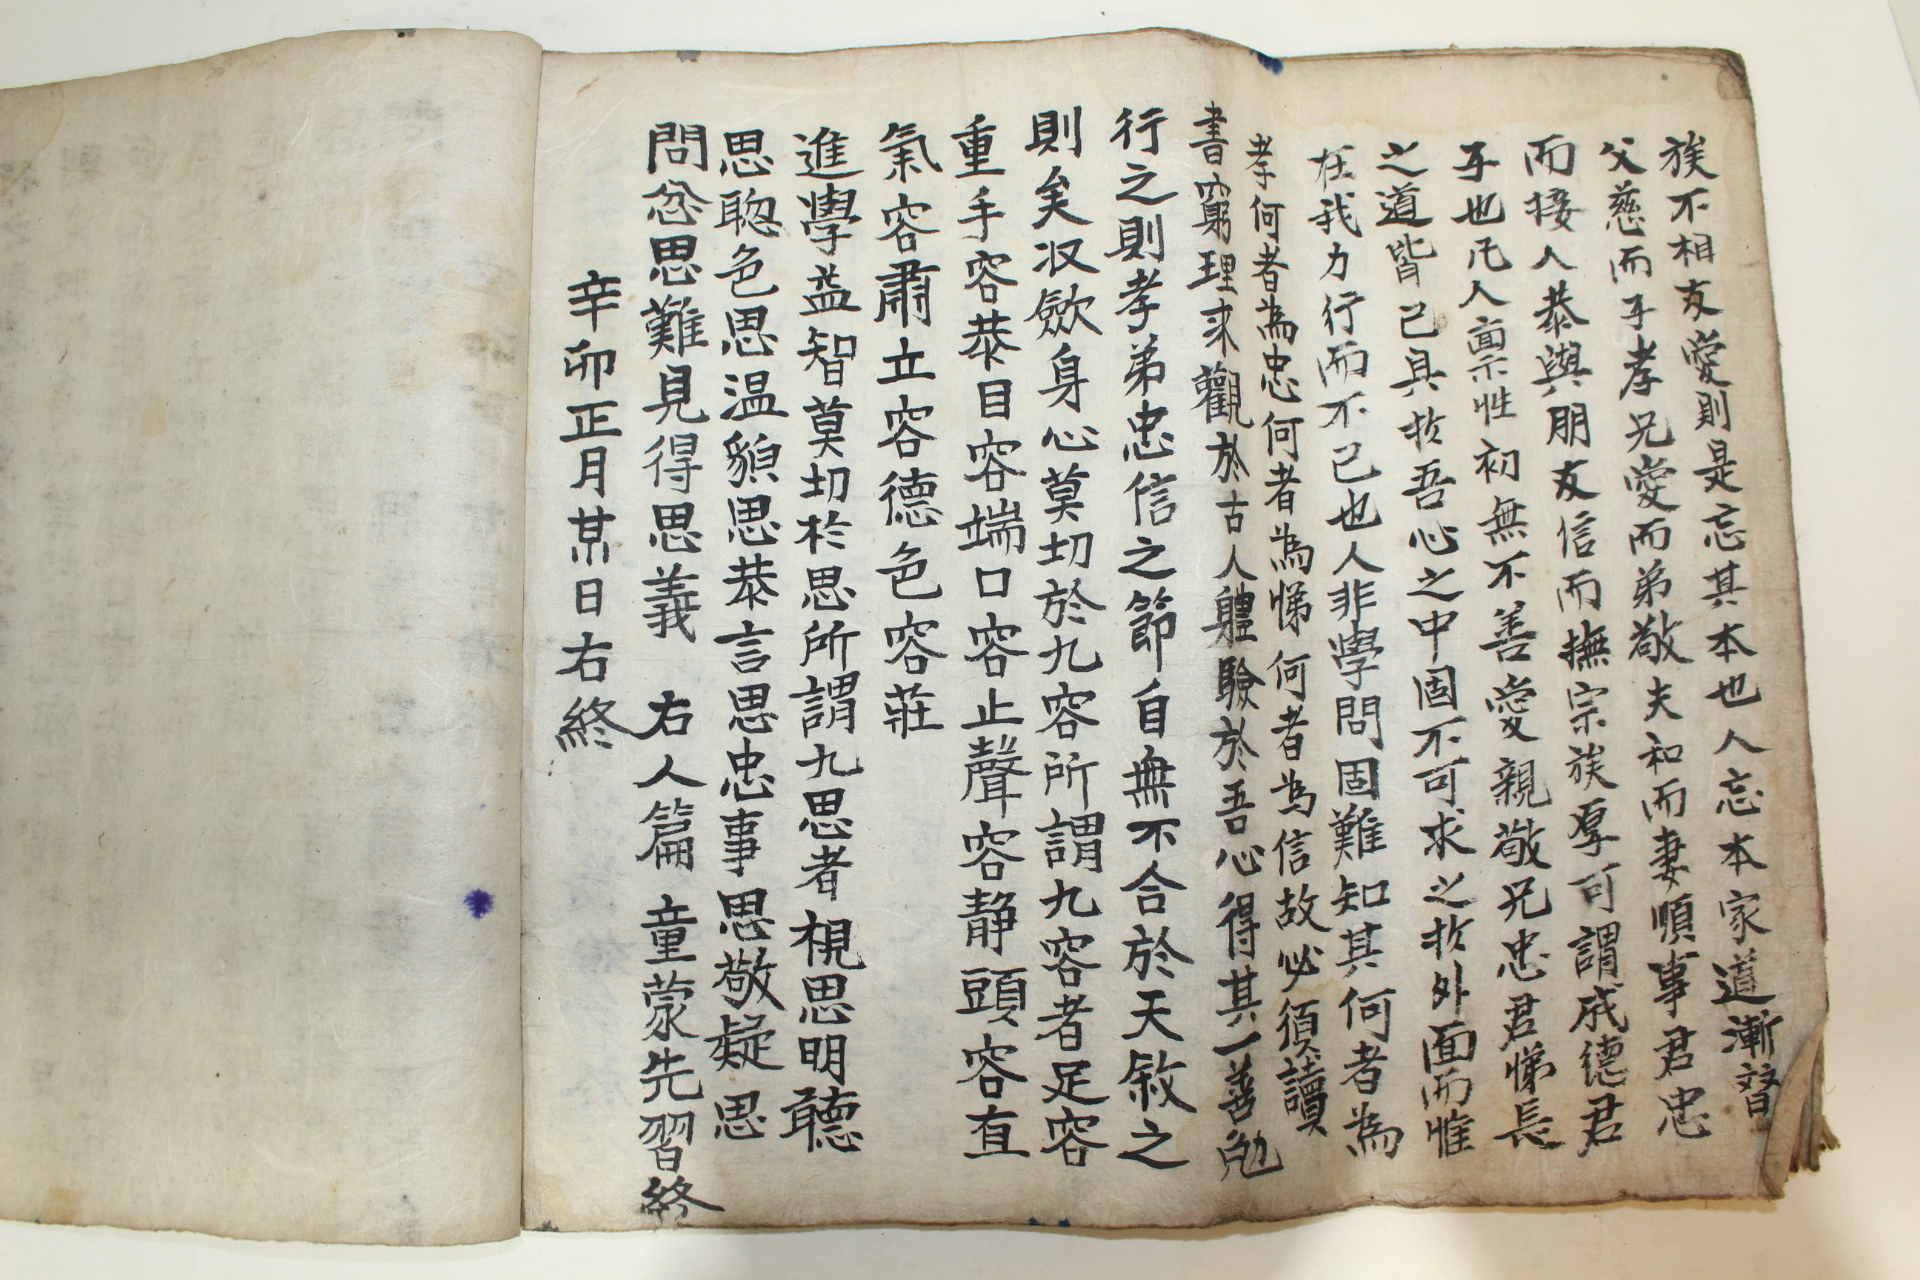 族不相友愛則是忘其本也人忘本家道漸替
父慈而子孝兄愛而弟敬夫和而妻順事君忠
而接人恭與朋友信而撫宗族厚可謂成德君
子也凡人禀性初無不善愛親敬兄忠君悌長
之道皆已具扵吾心之中固不可求之扵外面而惟
在我力行而不已也人非學問固難知其何者為
孝何者為忠何者為悌何者為信故必須讀
書窮理求觀於古人軆驗於吾心得其一善勉
行之則孝弟忠信之節自無不合於天敘之
則矣収斂身心莫切於九容所謂九容者足容
重手容恭目容端口容止聲容静頭容直
氣容肅立容德色容莊
進學益智莫切扵思所謂九思者視思明聽
思聦色思温貌思恭言思忠事思敬疑思
問忿思難見得思義 右人篇 童蒙先習終
辛卯正月某日右終